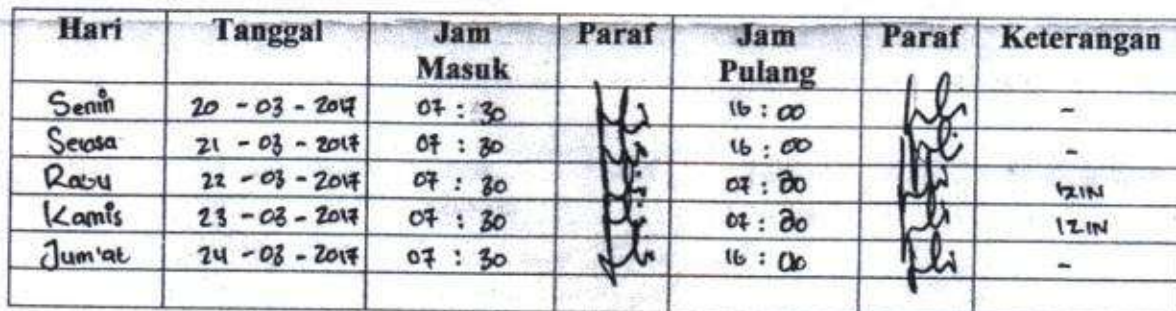 Hari Tanggal Jam Masuk Paraf Jam Pulang Paraf Keterangan
Senin 20 - 03 - 2017 07 : 30 16 : 00 -
Selasa 21 - 03 - 2017 07 : 30 16 : 00 -
Rabu 22 - 03 - 2017 07 : 30 07 : 30 IZIN
Kamis 23 - 03 - 2017 07 : 30 07 : 30 IZIN
Jum'at 24 - 03 - 2017 07 : 30 16 : 00 -